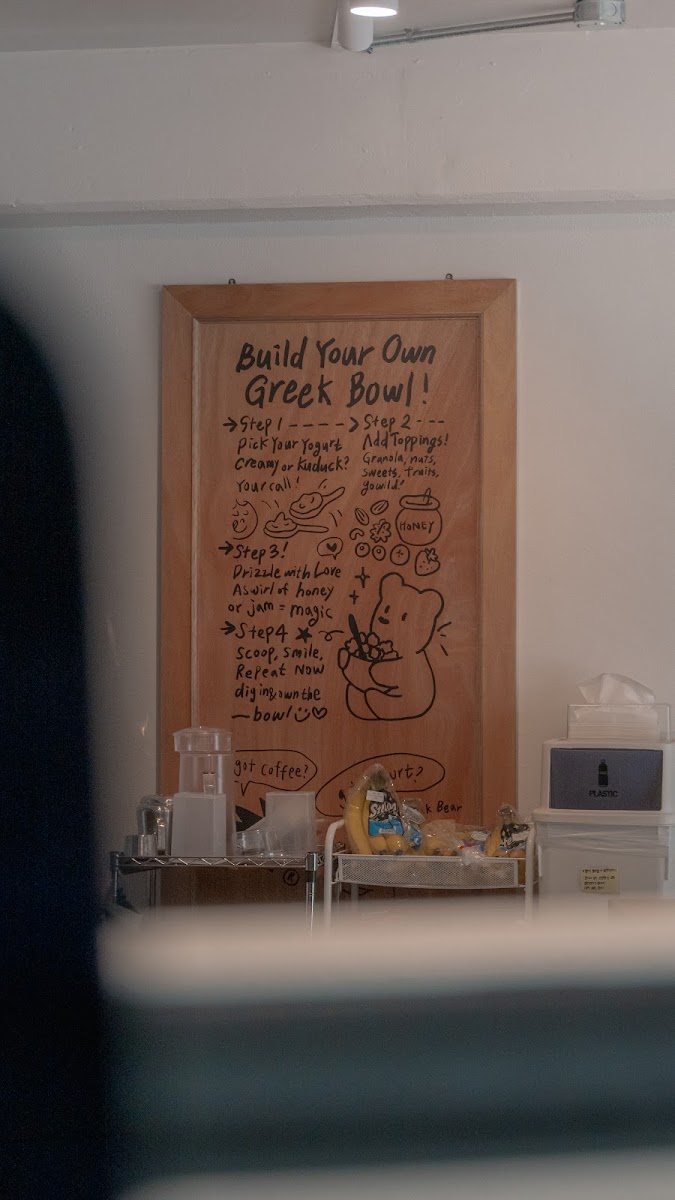 Build Your Own
Greek Bowl!
→Step 1 ----→
Pick Your Yogurt
Creamy or Kuduck?
Your call!
Step 2 ---
Add Toppings!
Granola, nuts,
sweets, fruits,
go wild!
HONEY
→Step3!
Drizzle with Love
A swirl of honey
or jam = magic
→Step4
Scoop, Smile,
Repeat Now
dig in & own the
bowl
got coffee?
urt?
k Bear
PLASTIC